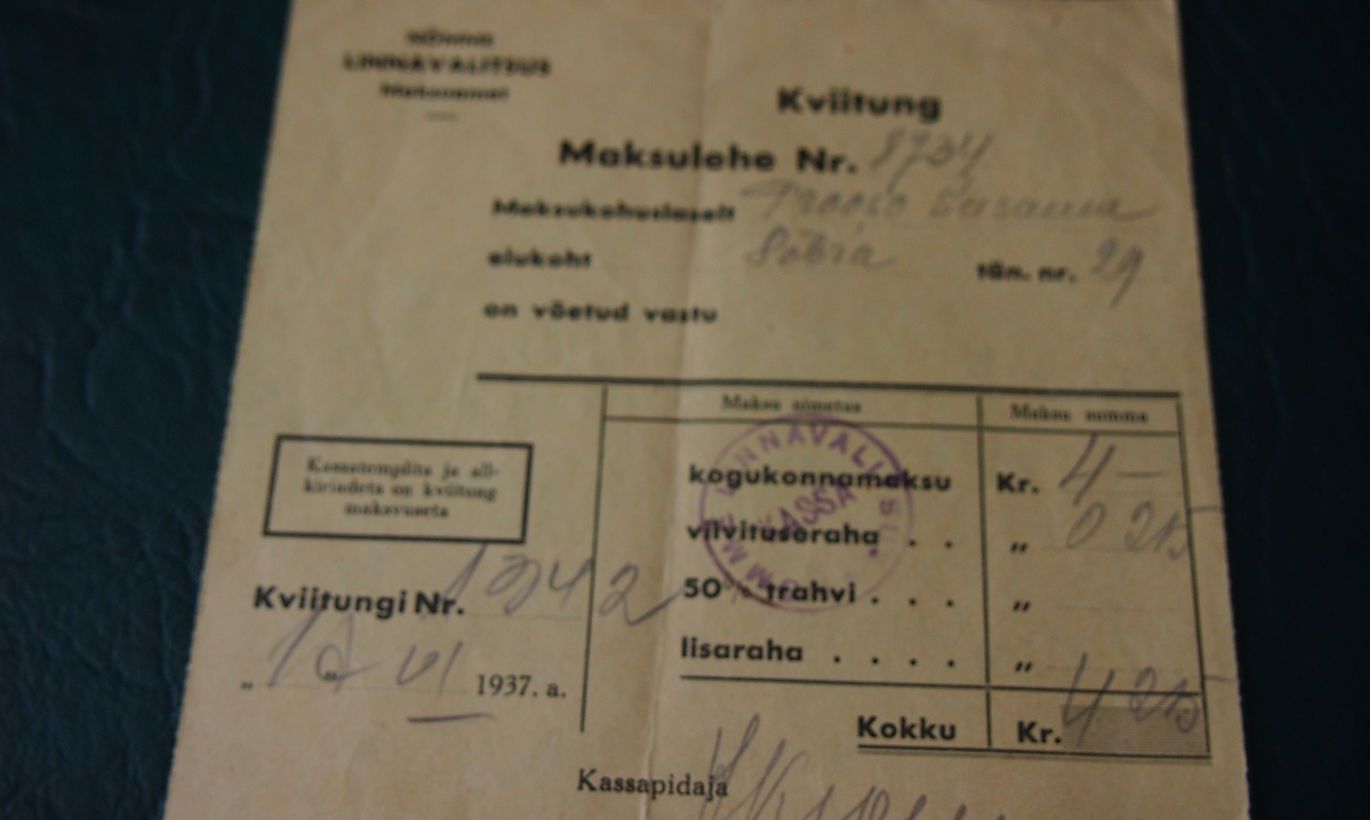 NÕMME
LINNAVALITSUS
Maksuamet
Kviitung
Maksulehe Nr. 8734
Maksukohuslaselt Susanna
elukoht Sõbra tän. nr. 29
on võetud vastu
Maksu nimetus Maksu summa
Kassatemplita ja all-
kirjadeta on kviitung
maksvuseta
kogukonnamaksu Kr. 4 –
viivituseraha . . „ 0 25
50% trahvi . . . „
lisaraha . . . . „
Kokku Kr. 4 25
NÕMME LINNAVALITSUS
KASSA
Kviitungi Nr. 1342
„ 12 „ VI 1937. a.
Kassapidaja